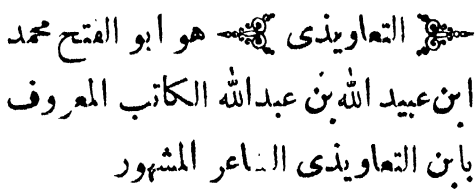 التعاويذى هو ابو الفتح محمد
ابن عبيد الله بن عبدالله الكاتب المعروف
بابن التعاويذى الشاعر المشهور